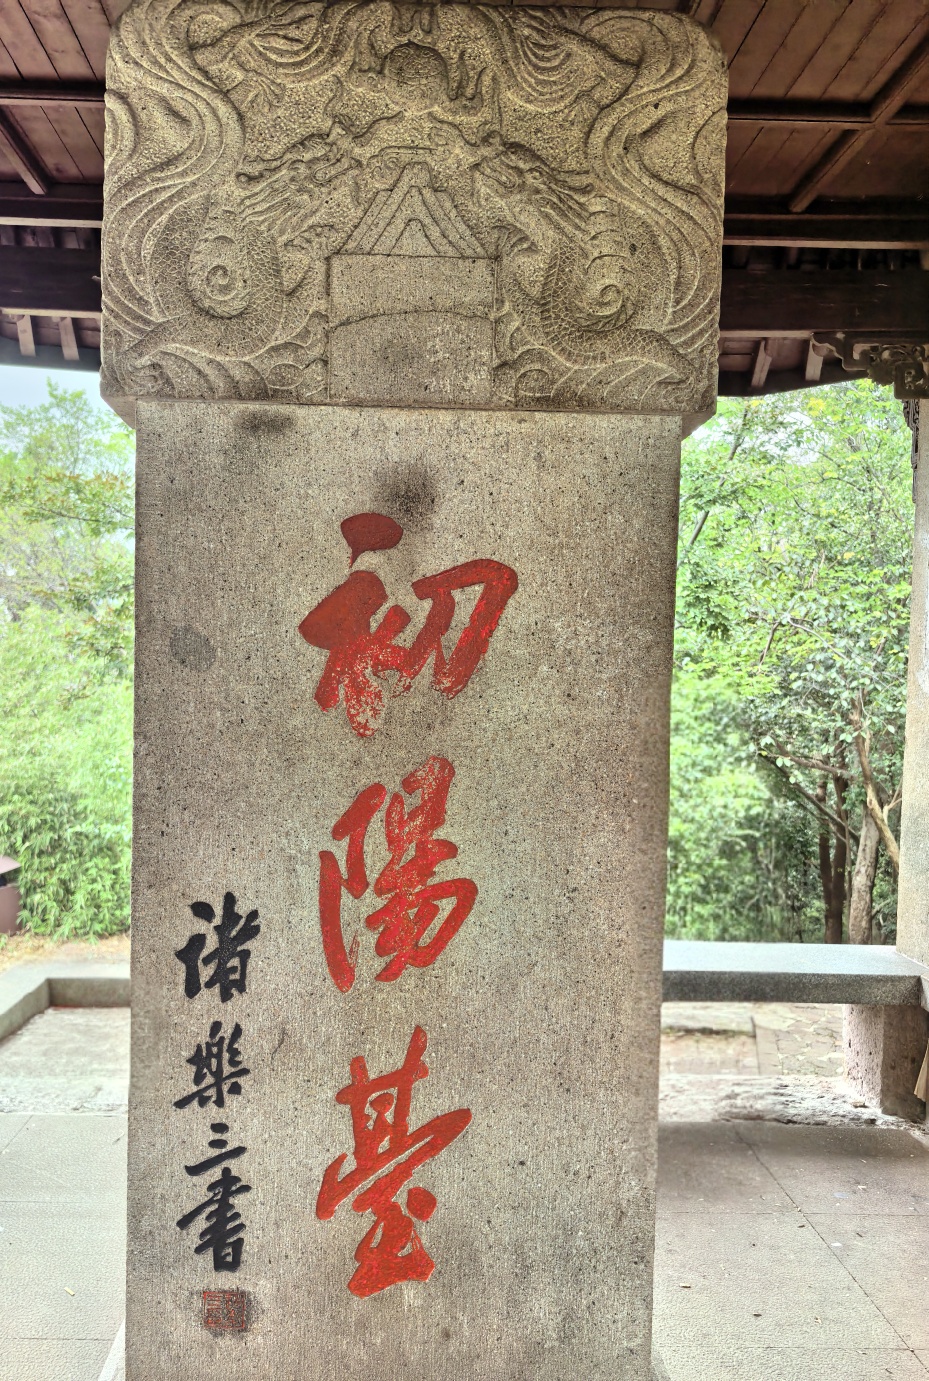 初陽臺
诸樂三書